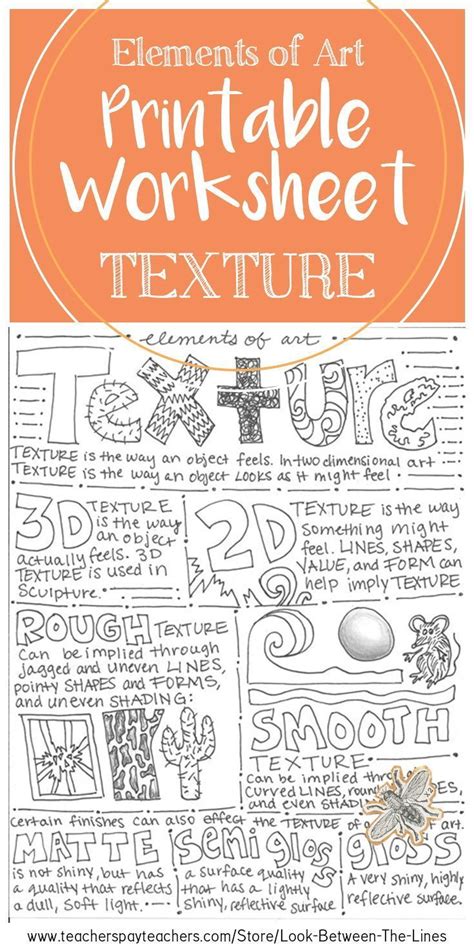 Elements of Art
Printable
Worksheet
TEXTURE
elements of art
Texture
TEXTURE is the way an object feels. In two dimensional art
TEXTURE is the way an object LOOKS as it might feel
3D TEXTURE
is the way
an object
actually feels. 3D
TEXTURE is used in
Sculpture.
2D TEXTURE is the way
Something might
feel. LINES, SHAPES,
VALUE, and FORM can
help imply TEXTURE
ROUGH TEXTURE
Can be implied through
jagged and uneven LINES,
pointy SHAPES and FORMS,
and uneven SHADING:
SMOOTH
TEXTURE
can be implied through
curved LINES,
and even
certain finishes can also effect the TEXTURE of art.
MATTE
is not shiny, but has
a quality that reflects
a dull, soft light.
Semi gloss
a surface quality
that has a lightly
shiny, reflective surface
gloss
A very shiny, highly
reflective surface.
www.teacherspayteachers.com/Store/Look-Between-The-Lines